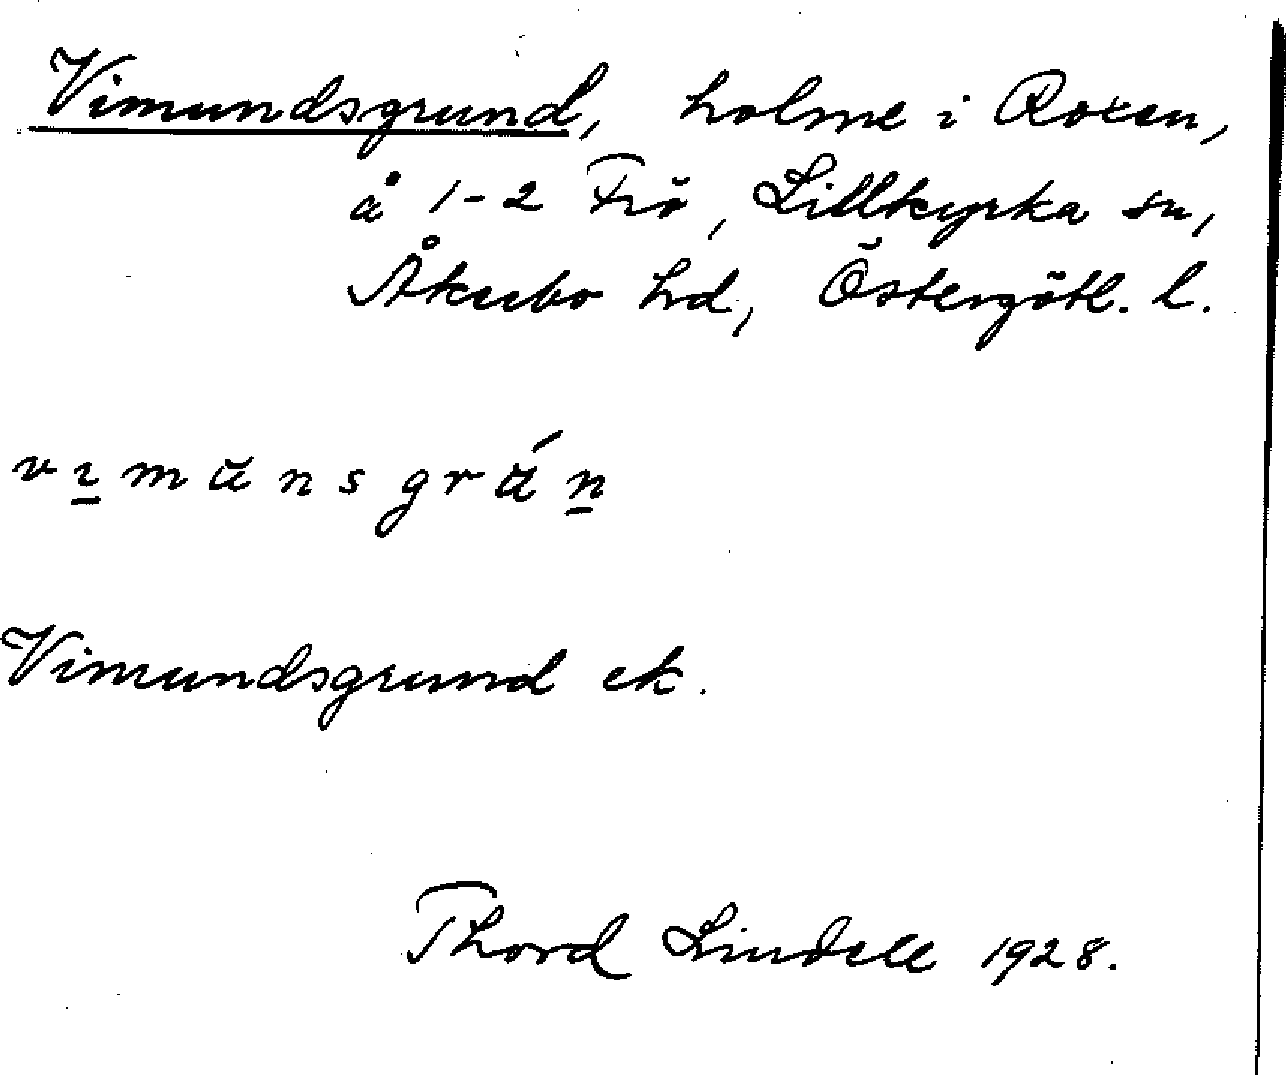 Vimundsgrund, holme i Roxen,
å 1-2 Frö, Lillkyrka sn,
Åkerbo hd, Östergötl. l.
Vimundsgrund ek.
Thord Lindell 1928.